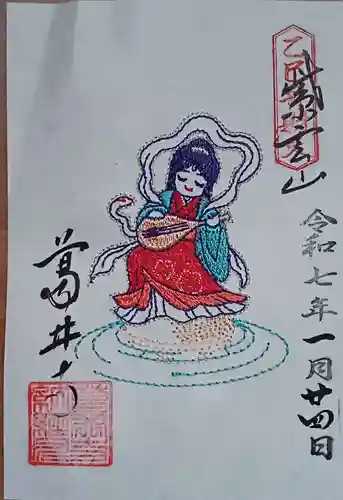 紫雲山
令和七年一月廿四日
葛井寺